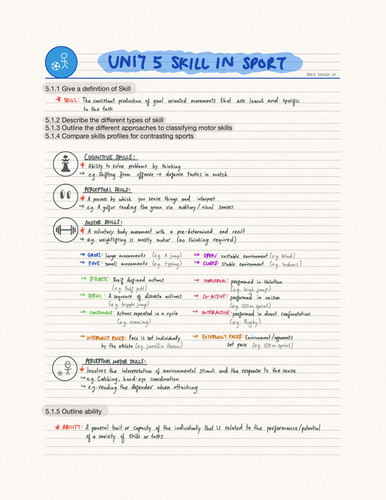 UNIT 5 SKILL IN SPORT
5.1.1 Give a definition of Skill
* SKILL: The consistent production of goal oriented movements that are learnt and specific
to the task
5.1.2 Describe the different types of skill
5.1.3 Outline the different approaches to classifying motor skills
5.1.4 Compare skills profiles for contrasting sports
COGNITIVE SKILLS:
* Ability to solve problems by thinking
→ e.g. Shifting from offense → defense tactics in match
PERCEPTUAL SKILLS:
* A process by which you sense things and interpret
→ e.g. A golfer reading the green via auditory / visual senses
MOTOR SKILLS:
* A voluntary body movement with a pre-determined end result
→ e.g. weightlifting is mostly motor (no thinking required)
→ GROSS: large movements (e.g. A jump)
→ OPEN: unstable environment (e.g. Wind)
→ FINE: small movements (e.g. typing)
→ CLOSED: stable environment (e.g. Indoors)
→ DISCRETE: Brief defined actions
(e.g. Golf putt)
→ INDIVIDUAL: performed in isolation
(e.g. high jump)
→ SERIAL: A sequence of discrete actions
(e.g. tripple jump)
→ CO-ACTIVE: performed in unison
(e.g. 100m sprint)
→ CONTINUOUS: Actions repeated in a cycle
(e.g. running)
→ INTERACTIVE: performed in direct confrontation
(e.g. Rugby)
→ INTERNALLY PACED: Pace is set individually
by the athlete (e.g. javelin throw)
→ EXTERNALLY PACED: Environment/opponents
set pace (e.g. 100m sprint)
PERCEPTUAL MOTOR SKILLS:
* Involves the interpretation of environmental stimuli and the response to the sense
→ e.g. Catching, hand-eye coordination
→ e.g. reading the defender when attacking
5.1.5 Outline ability
* ABILITY: A general trait or capacity of the individual that is related to the performance/potential
of a variety of skills or tasks